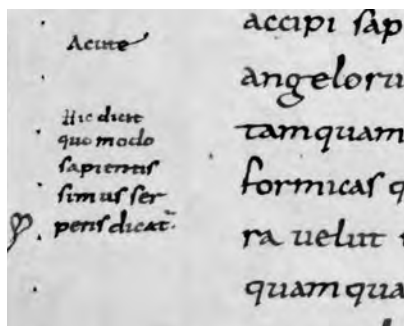 Acute
Hic dicit
quo modo
sapientis
simus ser
pens dicat̄.
accipi sap
angeloru
tamquam
formicas q
ra uelut
quam qua